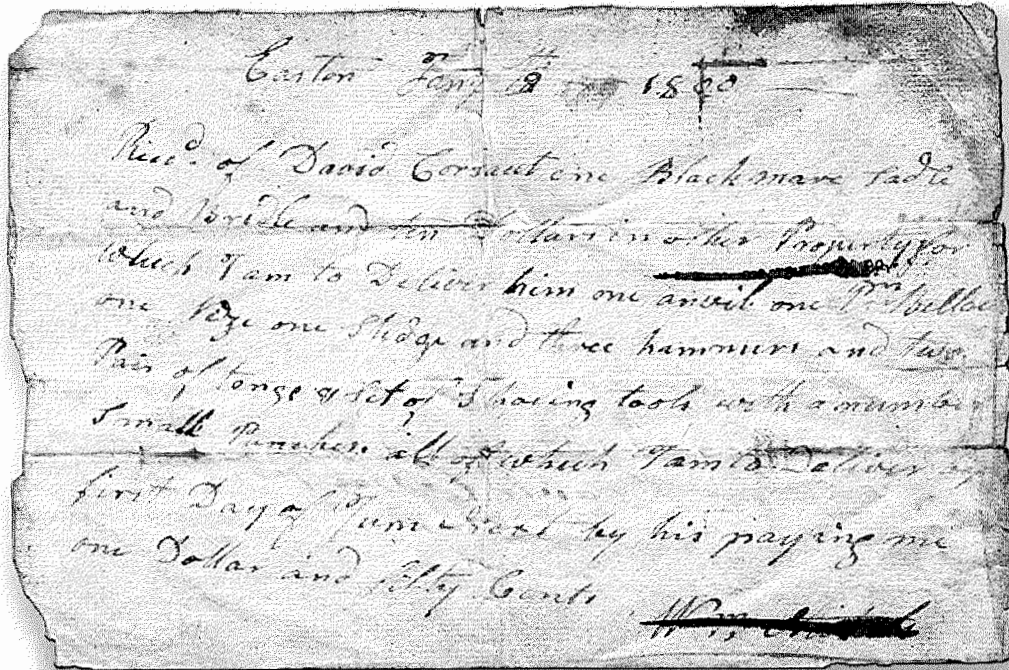 Easton Jany 1800
Recd. of David Corsaut one Black mare Sadle
and bridle and ten Dollars in other Property for
which I am to Deliver him one anvil one Pr. bellows
one Vize one Sledge and three hammers and two
Pair of tongs a set of Shoeing tools with a number
Small Punches all of which I am to Deliver
first Day of June next by his paying me
one Dollar and fifty Cents
Wm.